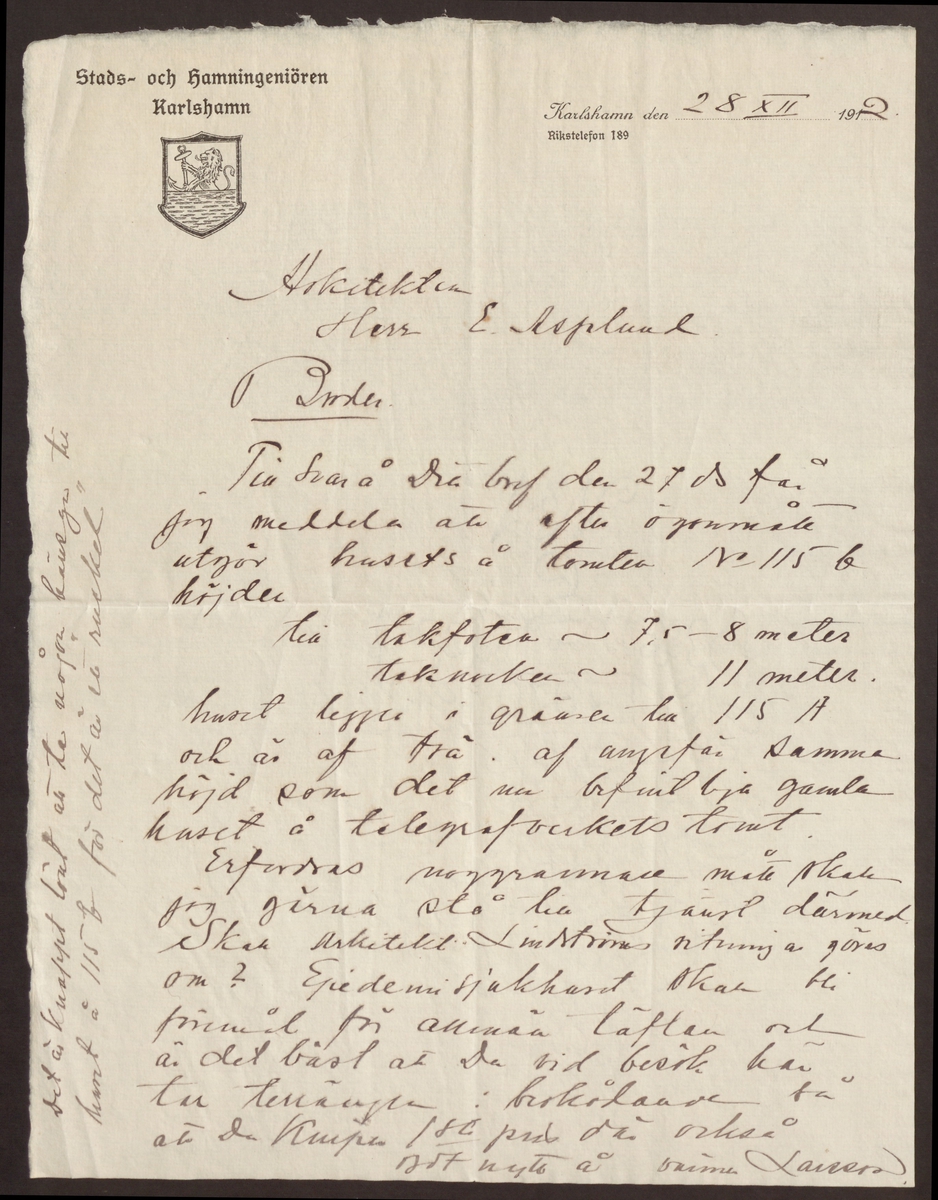 Stads- och Hamningeniören
Karlshamn
Karlshamn den 28 XII 1912.
Rikstelefon 189
Arkitekten
Herr E. Asplund.
Broder.
Till svar å Ditt bref den 27 ds får
jag meddela att efter ögonmått
utgör husets å tomten No 115 b
höjder
till takfoten ~ 7,5 – 8 meter
taknocken ~ 11 meter.
huset ligger i gränsen till 115 A
och är af trä. af ungefär samma
höjd som det nu befintliga gamla
huset å telegrafverkets tomt.
Erfordras noggrannare mått skall
jag gärna stå till tjänst därmed.
Skall Arkitekt Lindströms ritningar göras
om? Epidemisjukhuset skall bli
föremål för allmän täflan och
är det bäst att Du vid besök här
tar terrängen i beskådande så
att Du kniper 1sta pris där också
Godt nytt år vännen Larsson.
Det är knappt lönt att ta någon hänsyn till
huset å 115 b för det är ett ruckel"